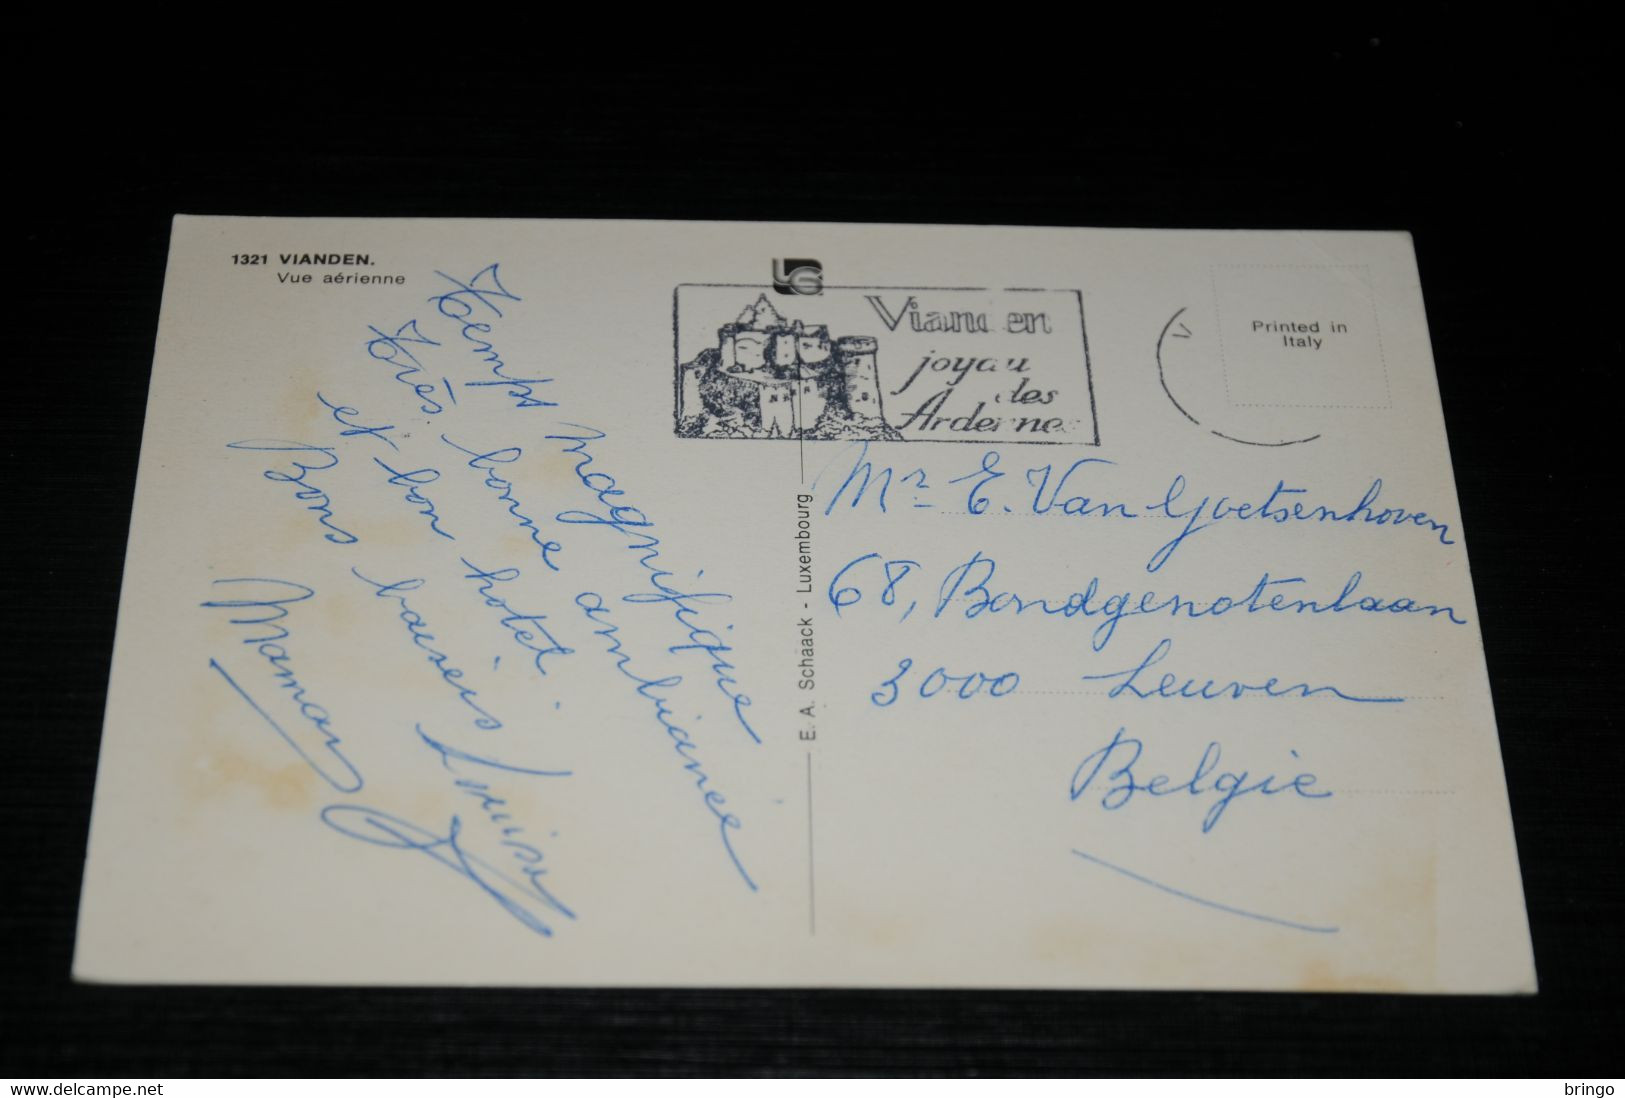 1321 VIANDEN.
Vue aérienne
Temps magnifique
Très bonne ambiance
et bon hotel.
Bons baisers
Maman Louisa
Vianden
joyau
des
Ardennes
Printed in
Italy
E. A. Schaack - Luxembourg
Mr E. Van Goetsenhoven
68, Bondgenotenlaan
3000 Leuven
Belgie
delcampe.net
bringo